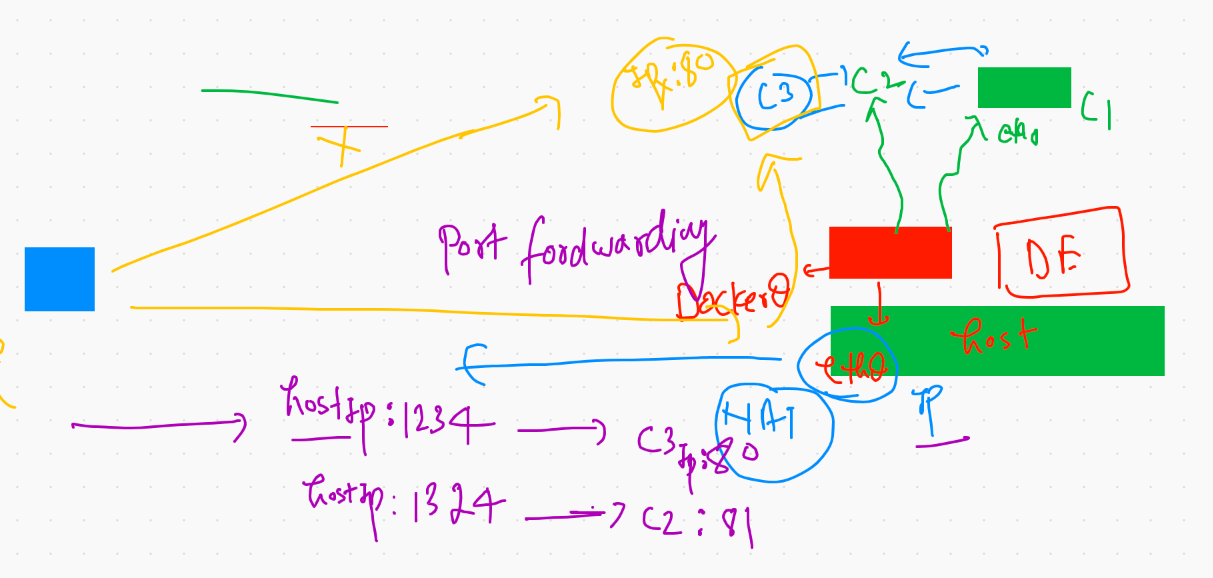 Ip:80
C3
C2
C1
eth0
Port fordwarding
Docker0
DE
host
eth0
IP
NAT
hostIp:1234 → C3Ip:80
hostIp:1324 → C2:81